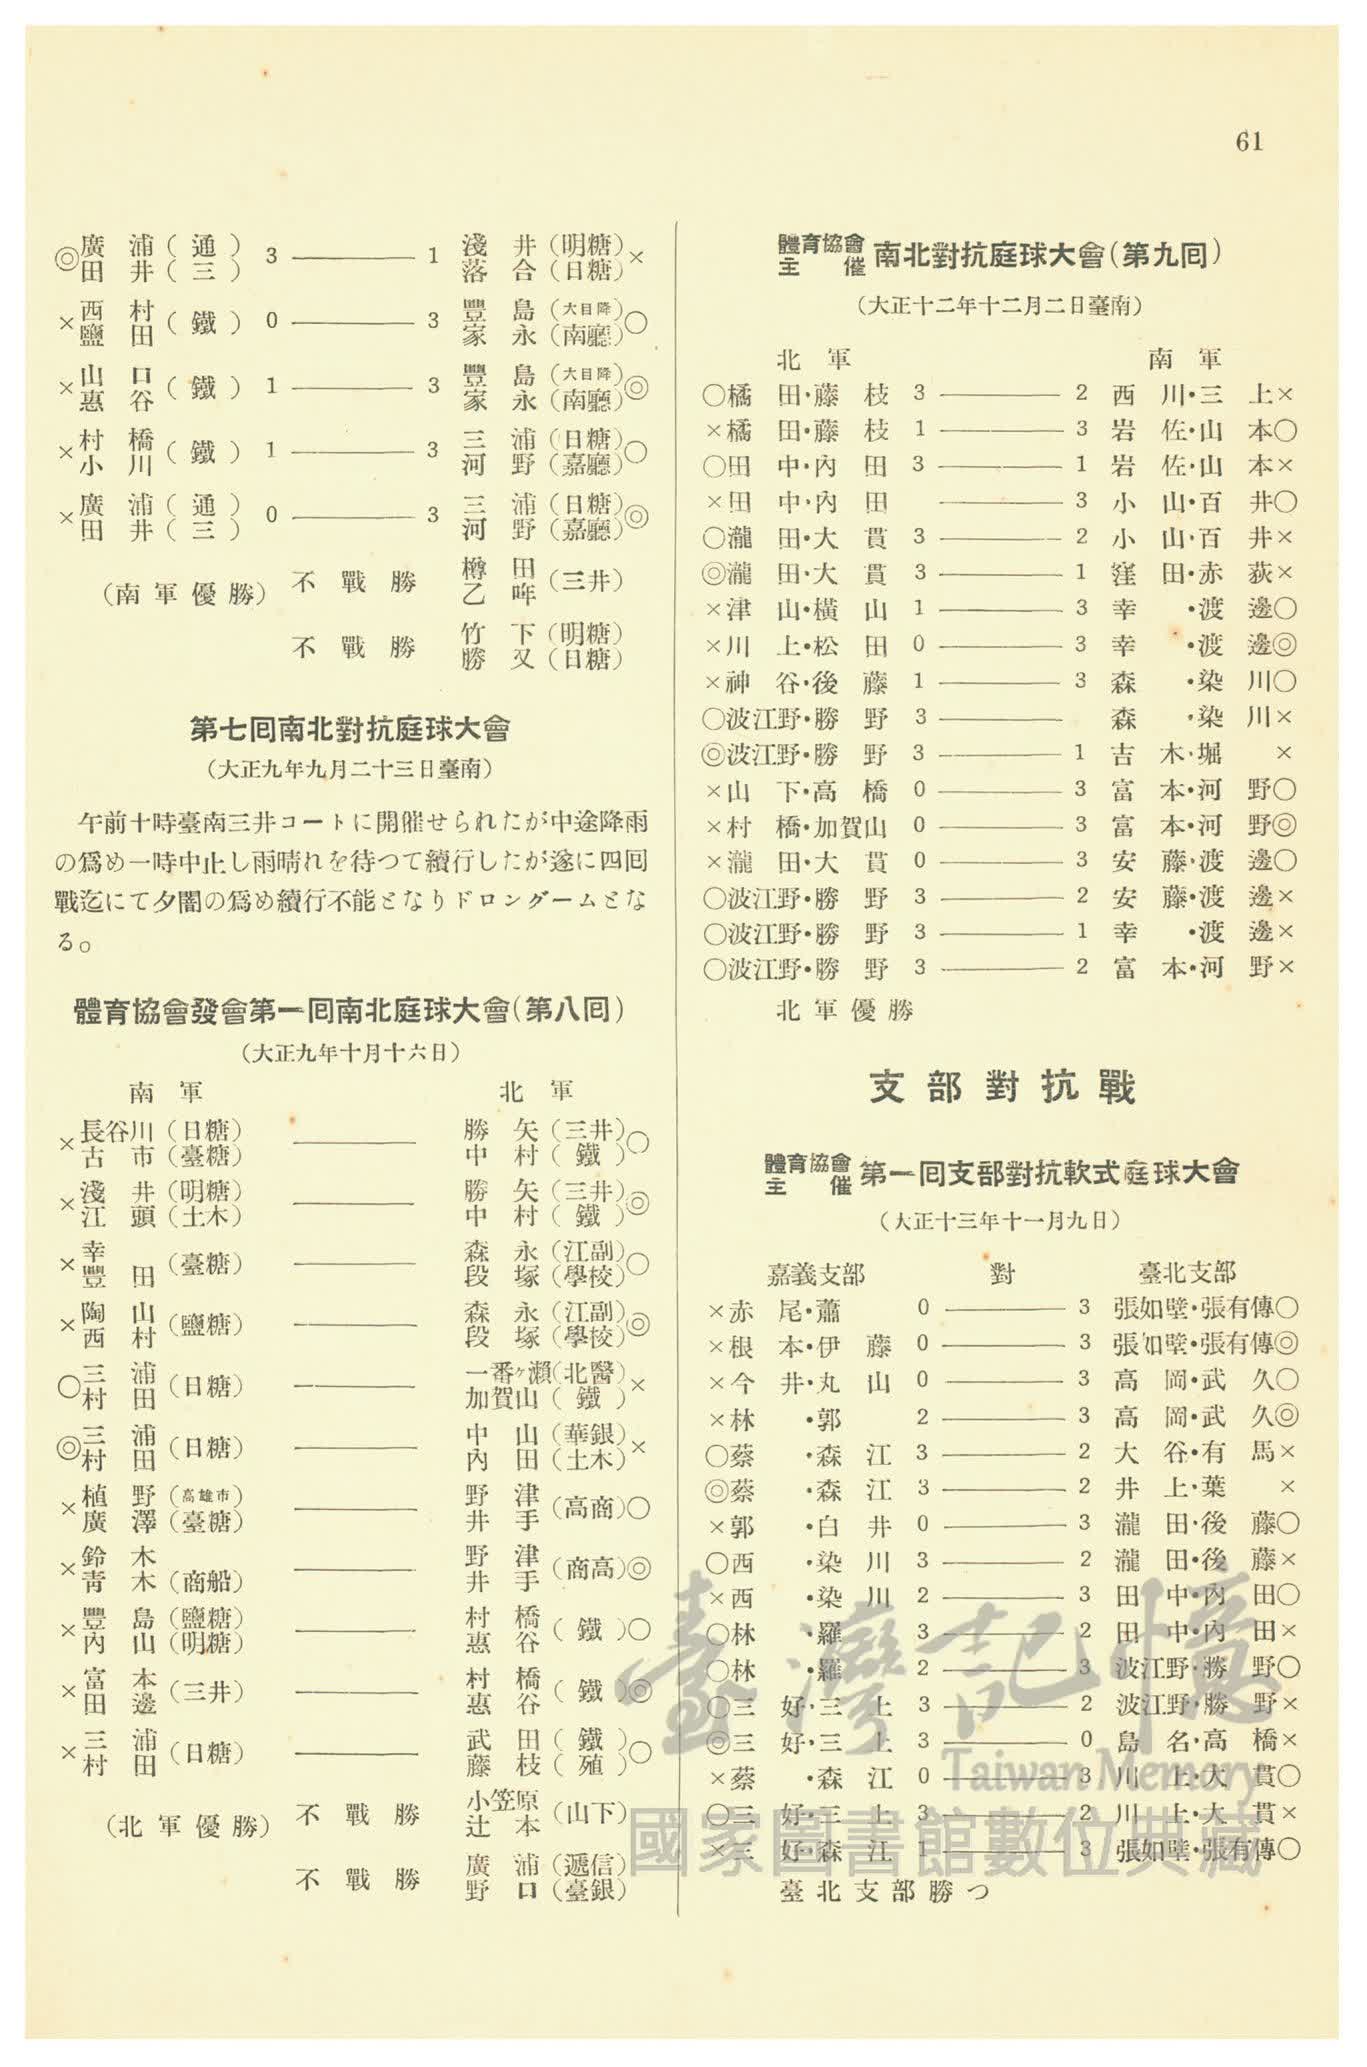 61
◎廣浦(通) 3 ——— 1 淺井(明糖)×
田井(三) 落合(日糖)
×西村(鐵) 0 ——— 3 豐島(大目降)○
鹽田 家永(南廳)
×山口(鐵) 1 ——— 3 豐島(大目降)◎
惠谷 家永(南廳)
×村橋(鐵) 1 ——— 3 三浦(日糖)○
小川 河野(嘉廳)
×廣浦(通) 0 ——— 3 三浦(日糖)◎
田井(三) 河野(嘉廳)
(南軍優勝) 不戰勝 樽田(三井)
乙咩
不戰勝 竹下(明糖)
勝又(日糖)
第七回南北對抗庭球大會
(大正九年九月二十三日臺南)
午前十時臺南三井コートに開催せられたが中途降雨
の爲め一時中止し雨晴れを待つて續行したが遂に四回
戰迄にて夕闇の爲め續行不能となりドロンゲームとな
る。
體育協會發會第一回南北庭球大會(第八回)
(大正九年十月十六日)
南軍 北軍
×長谷川(日糖) ——— 勝矢(三井)○
古市(臺糖) 中村(鐵)
×淺井(明糖) ——— 勝矢(三井)◎
江頭(土木) 中村(鐵)
×幸(臺糖) ——— 森永(江副)○
豐田 段塚(學校)
×陶山(鹽糖) ——— 森永(江副)◎
西村 段塚(學校)
○三浦(日糖) ——— 一番ヶ瀨(北醫)×
村田 加賀山(鐵)
◎三浦(日糖) ——— 中山(華銀)×
村田 內田(土木)
×植野(高雄市) ——— 野津(高商)○
廣澤(臺糖) 井手
×鈴木 ——— 野津(商高)◎
青木(商船) 井手
×豐島(鹽糖) ——— 村橋(鐵)○
內山(明糖) 惠谷
×富本(三井) ——— 村橋(鐵)◎
田邊 惠谷
×三浦(日糖) ——— 武田(鐵)○
村田 藤枝(殖)
(北軍優勝) 不戰勝 小笠原(山下)
辻本
不戰勝 廣浦(遞信)
野口(臺銀)
體育協會主催 南北對抗庭球大會(第九回)
(大正十二年十二月二日臺南)
北軍 南軍
○橘田・藤枝 3 ——— 2 西川・三上×
×橘田・藤枝 1 ——— 3 岩佐・山本○
○田中・內田 3 ——— 1 岩佐・山本×
×田中・內田 ——— 3 小山・百井○
○瀧田・大貫 3 ——— 2 小山・百井×
◎瀧田・大貫 3 ——— 1 窪田・赤荻×
×津山・橫山 1 ——— 3 幸・渡邊○
×川上・松田 0 ——— 3 幸・渡邊◎
×神谷・後藤 1 ——— 3 森・染川○
○波江野・勝野 3 ——— 森・染川×
◎波江野・勝野 3 ——— 1 吉木・堀×
×山下・高橋 0 ——— 3 富本・河野○
×村橋・加賀山 0 ——— 3 富本・河野◎
×瀧田・大貫 0 ——— 3 安藤・渡邊○
○波江野・勝野 3 ——— 2 安藤・渡邊×
○波江野・勝野 3 ——— 1 幸・渡邊×
○波江野・勝野 3 ——— 2 富本・河野×
北軍優勝
支部對抗戰
體育協會主催 第一回支部對抗軟式庭球大會
(大正十三年十一月九日)
嘉義支部 對 臺北支部
×赤尾・蕭 0 ——— 3 張如壁・張有傳○
×根本・伊藤 0 ——— 3 張如壁・張有傳◎
×今井・丸山 0 ——— 3 高岡・武久○
×林・郭 2 ——— 3 高岡・武久◎
○蔡・森江 3 ——— 2 大谷・有馬×
◎蔡・森江 3 ——— 2 井上・葉×
×郭・白井 0 ——— 3 瀧田・後藤○
○西・染川 3 ——— 2 瀧田・後藤×
×西・染川 2 ——— 3 田中・內田○
○林・羅 3 ——— 2 田中・內田×
○林・羅 2 ——— 3 波江野・勝野○
○三好・三上 3 ——— 2 波江野・勝野×
◎三好・三上 3 ——— 0 島名・高橋×
×蔡・森江 0 ——— 3 川上・大貫○
○三好・三上 3 ——— 2 川上・大貫×
×三好・森江 1 ——— 3 張如壁・張有傳○
臺北支部勝つ
臺灣記憶
Taiwan Memory
國家圖書館數位典藏